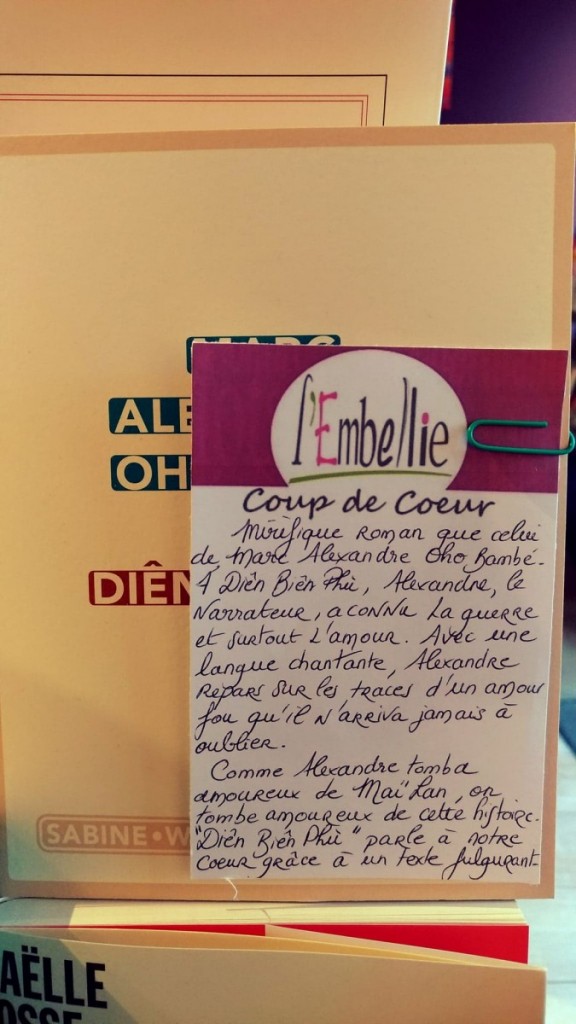 MARC
ALE
OH
DIÊN
l'Embellie
Coup de Coeur
Mirifique roman que celui
de Marc Alexandre Oho Bambé.
A Diên Biên Phù, Alexandre, le
narrateur, a connu la guerre
et surtout l'amour. Avec une
langue chantante, Alexandre
repars sur les traces d'un amour
fou qu'il n'arriva jamais à
oublier.
Comme Alexandre tomba
amoureux de Maï Lan, on
tombe amoureux de cette histoire.
"Diên Biên Phù" parle à notre
coeur grâce à un texte fulgurant
SABINE•W
AËLLE
OSSE